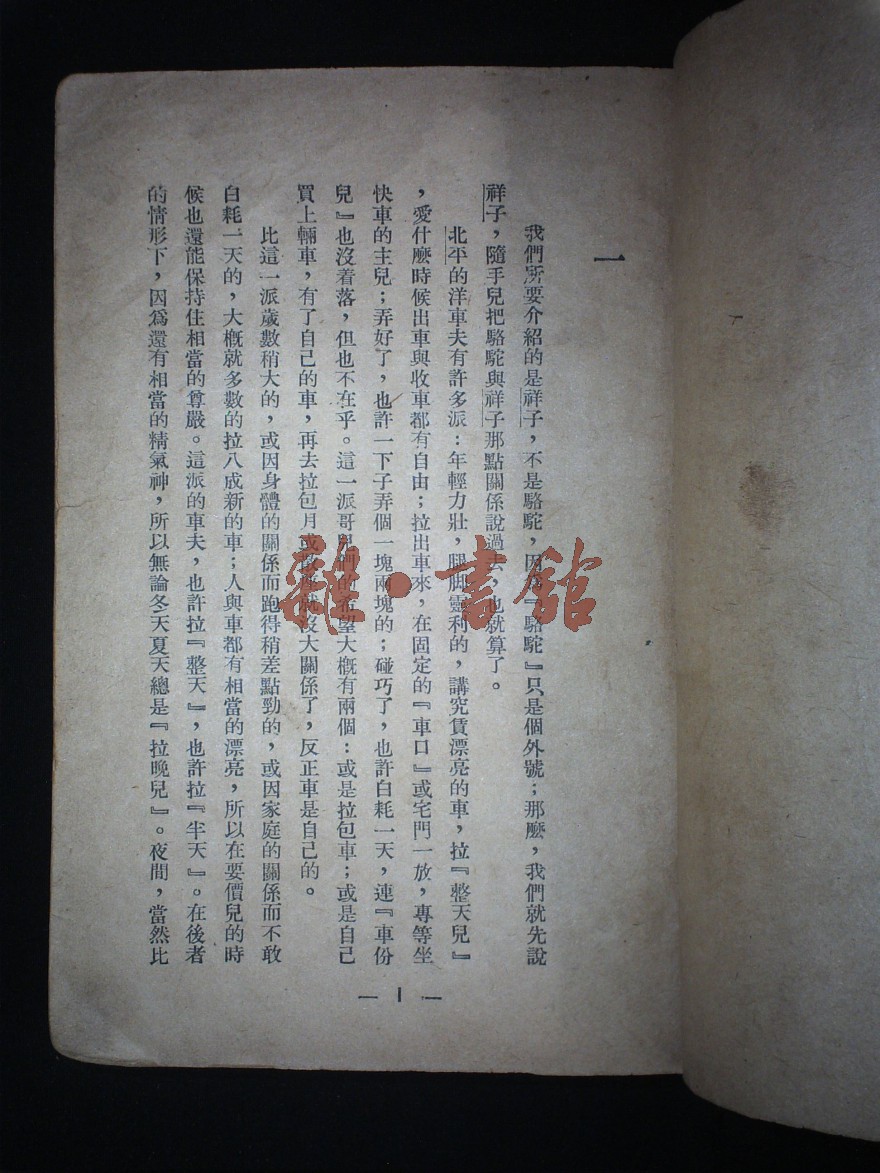 一
我們所要介紹的是祥子，不是駱駝，因爲『駱駝』只是個外號；那麼，我們就先說
祥子，隨手兒把駱駝與祥子那點關係說過去，也就算了。
北平的洋車夫有許多派：年輕力壯，腿脚靈利的，講究賃漂亮的車，拉『整天兒』
，愛什麼時候出車與收車都有自由；拉出車來，在固定的『車口』或宅門一放，專等坐
快車的主兒；弄好了，也許一下子弄個一塊兩塊的；碰巧了，也許白耗一天，連『車份
兒』也沒着落，但也不在乎。這一派哥兒們的希望大概有兩個：或是拉包車；或是自己
買上輛車，有了自己的車，再去拉包月或散座就沒大關係了，反正車是自己的。
比這一派歲數稍大的，或因身體的關係而跑得稍差點勁的，或因家庭的關係而不敢
白耗一天的，大概就多數的拉八成新的車；人與車都有相當的漂亮，所以在要價兒的時
候也還能保持住相當的尊嚴。這派的車夫，也許拉『整天』，也許拉『半天』。在後者
的情形下，因爲還有相當的精氣神，所以無論冬天夏天總是『拉晚兒』。夜間，當然比
— 1 —
雜·書館